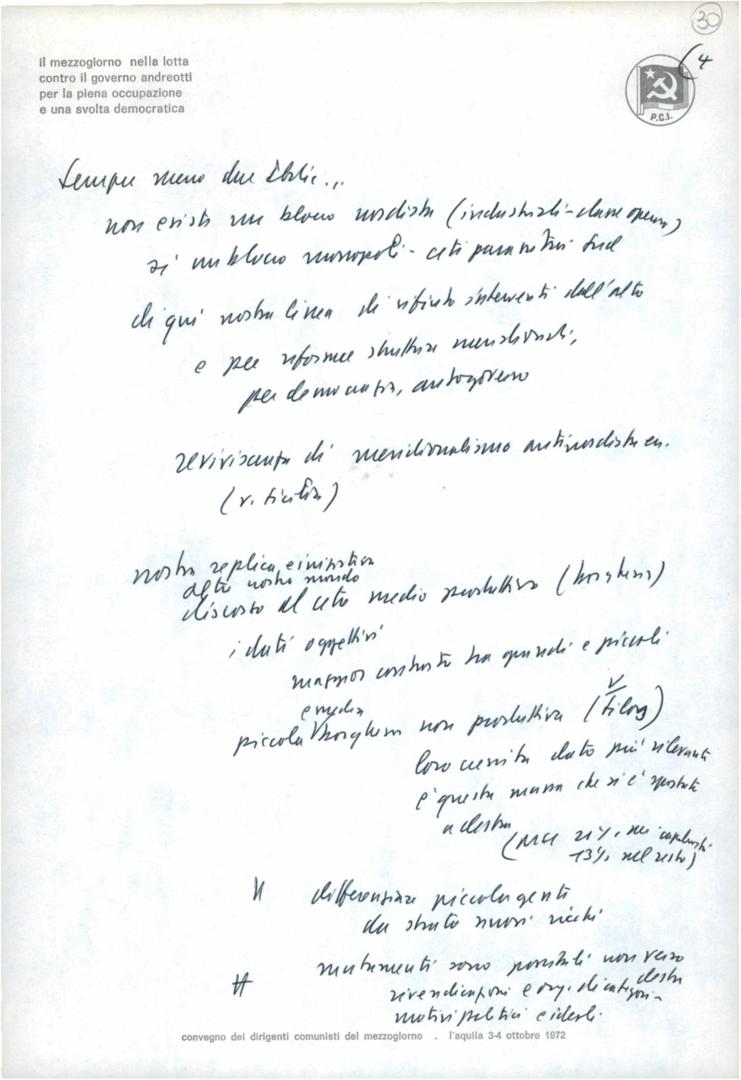 30
(4
il mezzogiorno nella lotta
contro il governo andreotti
per la piena occupazione
e una svolta democratica
P.C.I.
Sempre meno due Italie...
non esiste un blocco nordista (industriali-classe operaia)
sì un blocco monopoli - ceti parassitari Sud
di qui nostra linea di rifiuto interventi dall'alto
e per riforme strutture meridionali,
per democrazia, autogoverno
reviviscenza di meridionalismo antinordista
(v. Sicilia)
nostra replica e iniziativa
nostro mondo
discorso al ceto medio produttivo (borghesia)
i dati oggettivi
maggior contrasto tra grandi e piccoli
e media
piccola V borghesia non produttiva (
loro crescita dato più rilevante
è questa massa che si è spostata
a destra
(MSI 21% nei capoluoghi
13% nel resto)
differenziare piccola gente
da strato nuovi ricchi
mutamenti sono possibili non verso
destra
rivendicazioni e org. di categoria
motivi politici e ideali.
convegno dei dirigenti comunisti del mezzogiorno . l'aquila 3-4 ottobre 1972